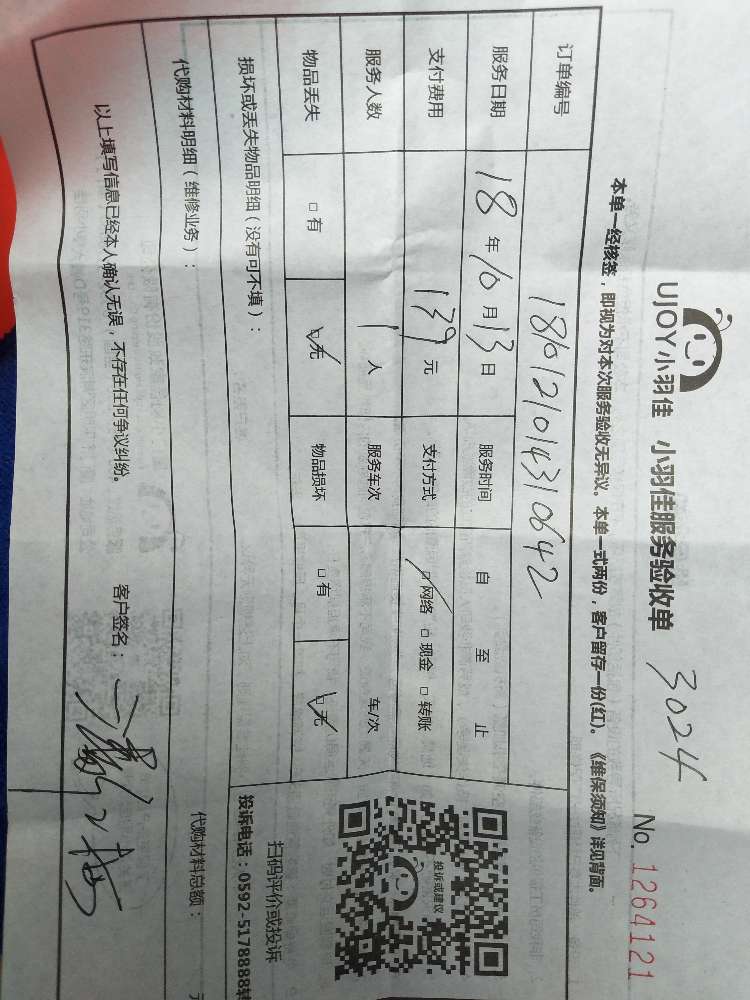 UJOY小羽佳 小羽佳服务验收单 3024 No. 1264121
本单一经核签，即视为对本次服务验收无异议。本单一式两份，客户留存一份(红)。《维保须知》详见背面。
订单编号 1810121014310642
服务日期 18 年 10 月 13 日 服务时间 自 至 止
支付费用 139 元 支付方式 □网络 □现金 □转账
服务人数 1 人 服务车次 车/次
物品丢失 □有 □无 物品损坏 □有 □无
损坏或丢失物品明细（没有可不填）：
代购材料明细（维修业务）： 代购材料总额： 元
以上填写信息已经本人确认无误，不存在任何争议纠纷。 客户签名：
投诉或建议
扫码评价或投诉
投诉电话：0592-5178888转